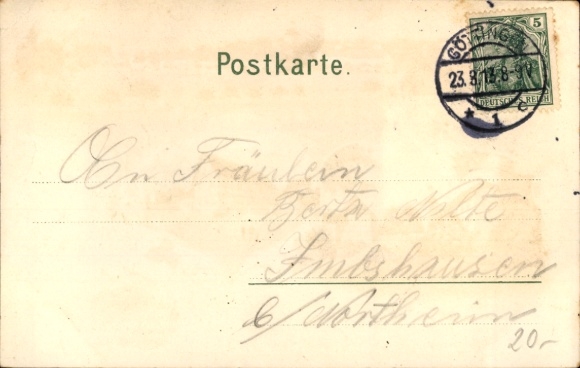 Postkarte.
5
GÖTTINGEN
23.9.13.8-9V
* 1 c
DEUTSCHES REICH
An Fräulein
Nolte
Imbshausen
b/Northeim
20.-